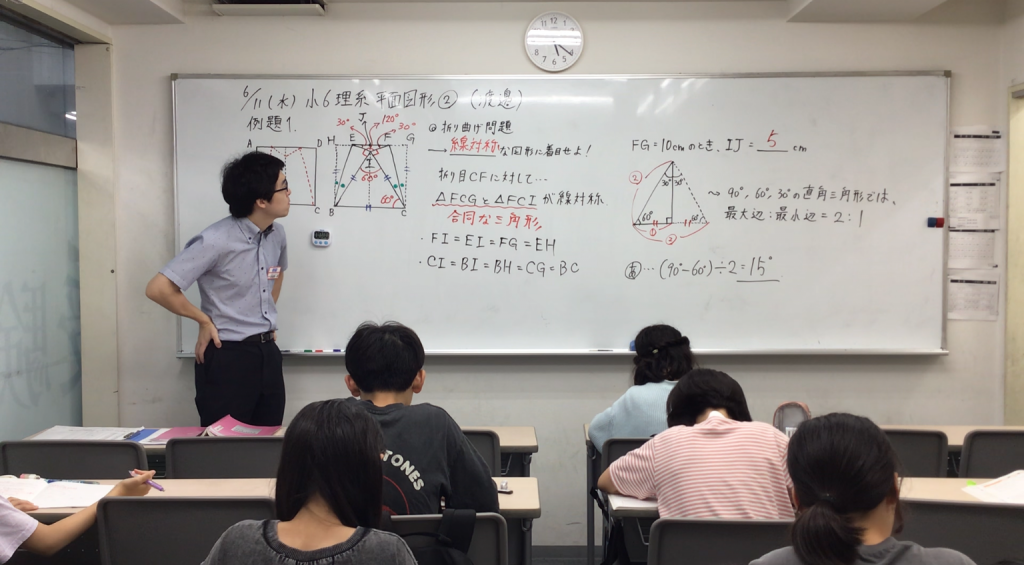 6/11(水) 小6理系 平面図形② (渡邉)
例題1.
A D
B C
H E J F G
30° 120° 30°
I
60°
60°
B C
◎折り曲げ問題
→線対称な図形に着目せよ!
折り目CFに対して…
△FCGと△FCIが線対称
合同な三角形
・FI=EI=FG=EH
・CI=BI=BH=CG=BC
FG=10cmのとき、IJ= 5 cm
②
30° 30°
60° 60°
①
②
〜90°,60°,30°の直角三角形では、
最大辺:最小辺=2:1
あ…(90°-60°)÷2=15°
12 1 2 3 4 5 6 7 8 9 10 11
TONES